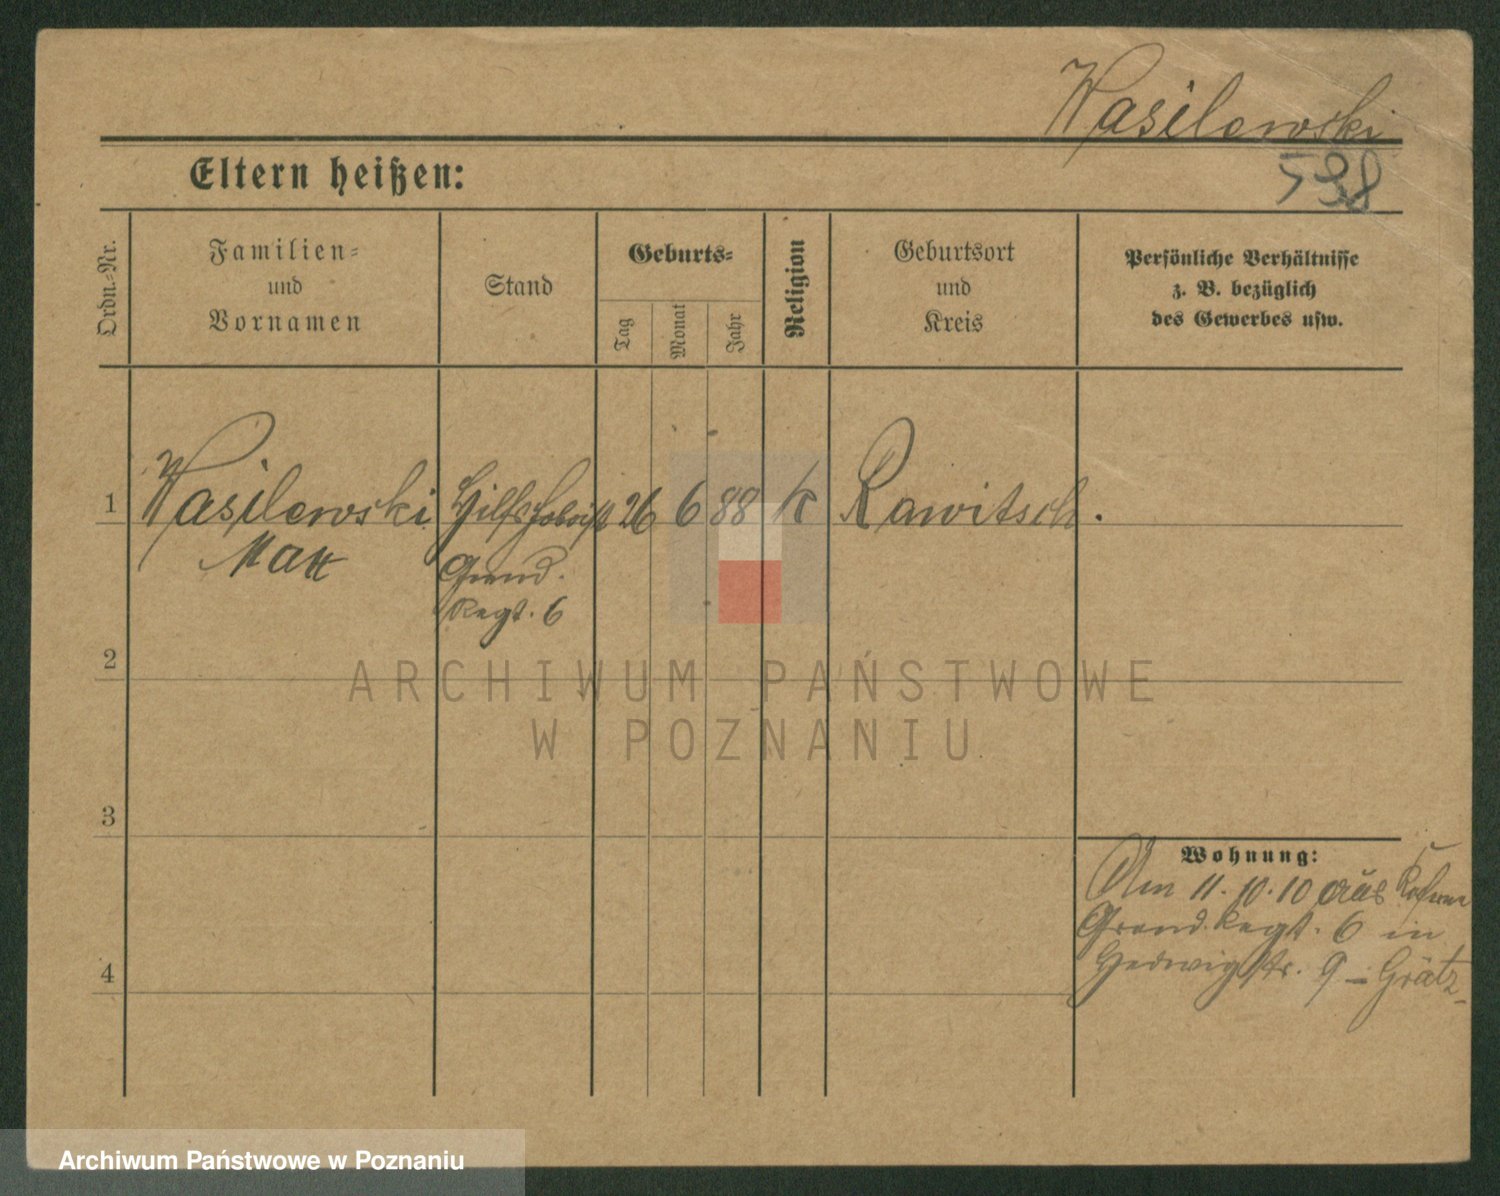 Wasilewski
538
Eltern heißen:
Ordn.-Nr.
Familien-
und
Vornamen
Stand
Geburts-
Tag
Monat
Jahr
Religion
Geburtsort
und
Kreis
Persönliche Verhältnisse
z. B. bezüglich
des Gewerbes usw.
1
Wasilewski
Max
Hilfshoboist
Grend.
Regt. 6
26
6
88
K
Rawitsch.
2
3
4
Wohnung:
Am 11.10.10 aus
Grend. Regt. 6 in
Hedwigstr. 9 – Grätz-
ARCHIWUM PAŃSTWOWE
W POZNANIU
Archiwum Państwowe w Poznaniu